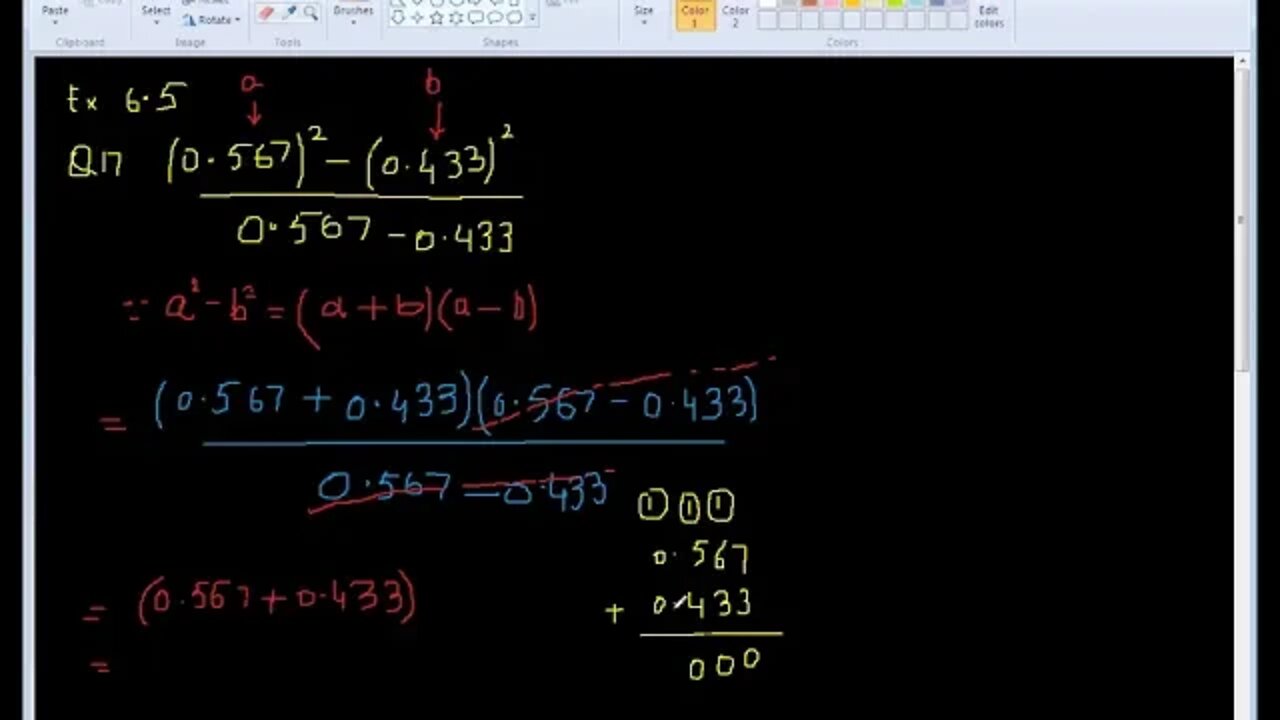 Paste Select Rotate Brushes Size Color 1 Color 2 Edit colors
Clipboard Image Tools Shapes Colors
a b
Ex 6.5
Q17 (0.567)² - (0.433)²
0.567 - 0.433
∵ a² - b² = (a + b)(a - b)
= (0.567 + 0.433)(0.567 - 0.433)
0.567 - 0.433
1 1 1
0.567
+ 0.433
000
= (0.567 + 0.433)
=